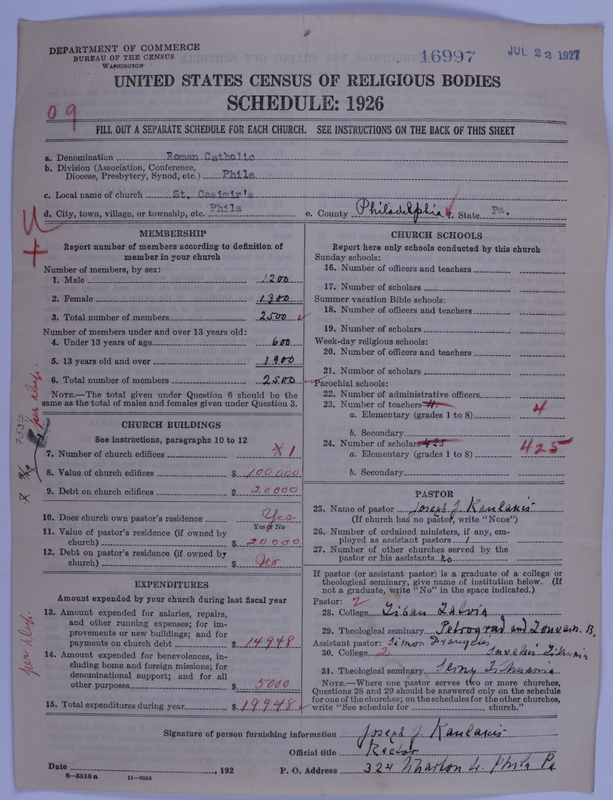 DEPARTMENT OF COMMERCE
BUREAU OF THE CENSUS
WASHINGTON
16997
JUL 23 1927
UNITED STATES CENSUS OF RELIGIOUS BODIES
SCHEDULE: 1926
09
FILL OUT A SEPARATE SCHEDULE FOR EACH CHURCH. SEE INSTRUCTIONS ON THE BACK OF THIS SHEET
a. Denomination Roman Catholic
b. Division (Association, Conference, Diocese, Presbytery, Synod, etc.) Phila
c. Local name of church St. Casimir's
d. City, town, village, or township, etc. Phila e. County Philadelphia f. State Pa.
MEMBERSHIP
Report number of members according to definition of member in your church
Number of members, by sex:
1. Male 1200
2. Female 1300
3. Total number of members 2500
Number of members under and over 13 years old:
4. Under 13 years of age 600
5. 13 years old and over 1900
6. Total number of members 2500
NOTE.—The total given under Question 6 should be the same as the total of males and females given under Question 3.
CHURCH BUILDINGS
See instructions, paragraphs 10 to 12
7. Number of church edifices 1
8. Value of church edifices $ 100,000
9. Debt on church edifices $ 20000
10. Does church own pastor's residence Yes.
Yes or No
11. Value of pastor's residence (if owned by church) $ 20000
12. Debt on pastor's residence (if owned by church) $ No
EXPENDITURES
Amount expended by your church during last fiscal year
13. Amount expended for salaries, repairs, and other running expenses; for improvements or new buildings; and for payments on church debt $ 14948
14. Amount expended for benevolences, including home and foreign missions; for denominational support; and for all other purposes $ 5000
15. Total expenditures during year $ 19948
CHURCH SCHOOLS
Report here only schools conducted by this church
Sunday schools:
16. Number of officers and teachers
17. Number of scholars
Summer vacation Bible schools:
18. Number of officers and teachers
19. Number of scholars
Week-day religious schools:
20. Number of officers and teachers
21. Number of scholars
Parochial schools:
22. Number of administrative officers
23. Number of teachers
a. Elementary (grades 1 to 8) 4
b. Secondary
24. Number of scholars 425
a. Elementary (grades 1 to 8) 425
b. Secondary
PASTOR
25. Name of pastor Joseph J. Kaulakis
(If church has no pastor, write "None")
26. Number of ordained ministers, if any, employed as assistant pastors 1
27. Number of other churches served by the pastor or his assistants no
If pastor (or assistant pastor) is a graduate of a college or theological seminary, give name of institution below. (If not a graduate, write "No" in the space indicated.)
Pastor: 2
28. College
29. Theological seminary Petrograd and Louvain. B.
Assistant pastor:
30. College 2
31. Theological seminary
NOTE.—Where one pastor serves two or more churches, Questions 28 and 29 should be answered only on the schedule for one of the churches; on the schedules for the other churches, write "See schedule for church."
Signature of person furnishing information Joseph J. Kaulakis
Official title Rector
Date , 192 P. O. Address 324 Wharton St. Phila Pa
6-5513a 11-9034